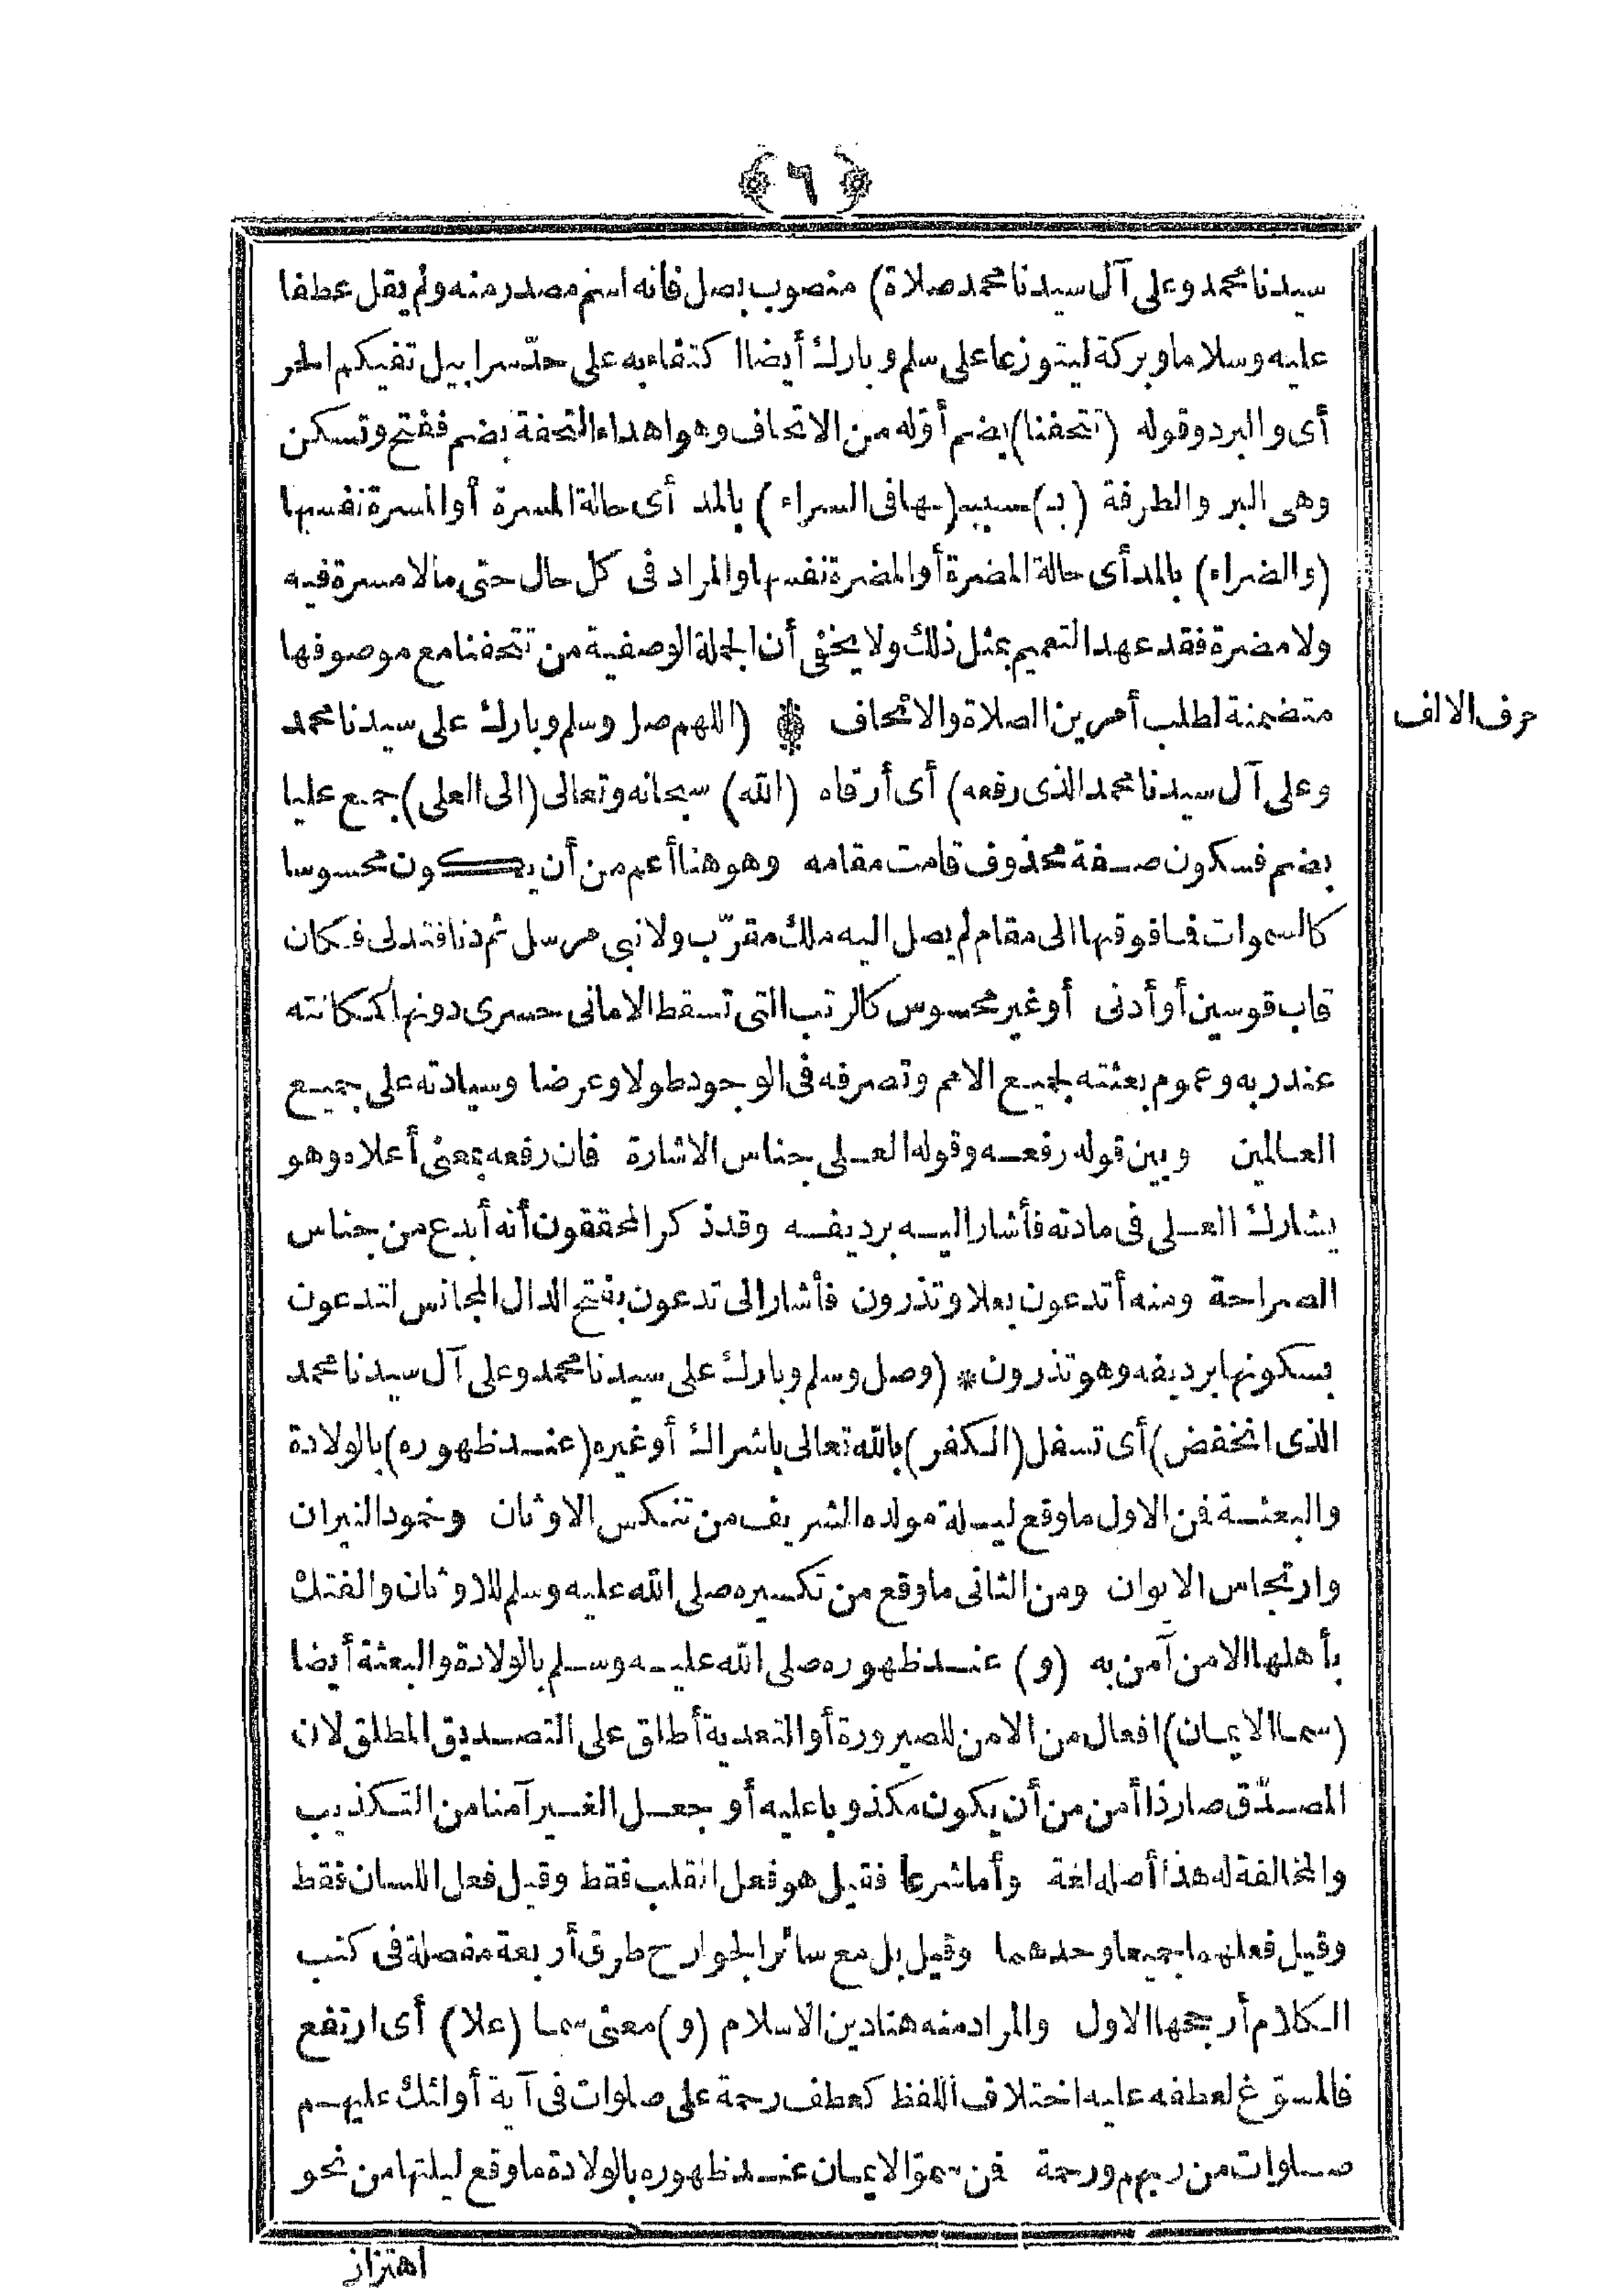 ﴿ ٦ ﴾
سيدنا محمد وعلى آل سيدنا محمد صلاة) منصوب بصل فانه اسم مصدر منه ولم يقل عطفا
عليه وسلاما وبركة ليتوزعا على سلم وبارك أيضا اكتفاء به على حدّ سرابيل تقيكم الحر
أى والبرد وقوله (تتحفنا) بضم أوّله من الاتحاف وهو اهداء التحفة بضم ففتح وتسكن
وهى البر والطرفة (بـ) سبب (ـها فى السراء) بالمد أى حالة المسرة أو المسرة نفسها
(والضراء) بالمد أى حالة المضرة أو المضرة نفسها والمراد فى كل حال حتى ما لا مسرة فيه
ولا مضرة فقد عهد التعميم بمثل ذلك ولا يخفى أن الجملة الوصفية من تتحفنا مع موصوفها
متضمنة لطلب أمرين الصلاة والاتحاف * (اللهم صل وسلم وبارك على سيدنا محمد
حرف الالف
وعلى آل سيدنا محمد الذى رفعه) أى أرقاه (الله) سبحانه وتعالى (الى العلى) جمع عليا
بضم فسكون صفة محذوف قامت مقامه وهو هنا أعم من أن يكون محسوسا
كالسموات فما فوقها الى مقام لم يصل اليه ملك مقرّب ولا نبى مرسل ثم دنا فتدلى فكان
قاب قوسين أو أدنى أو غير محسوس كالرتب التى تسقط الامانى حسرى دونها كمكانته
عند ربه وعموم بعثته لجميع الامم وتصرفه فى الوجود طولا وعرضا وسيادته على جميع
العالمين وبين قوله رفعه وقوله العلى جناس الاشارة فان رفعه بمعنى أعلاه وهو
يشارك العلى فى مادته فأشار اليه برديفه وقد ذكر المحققون أنه أبدع من جناس
الصراحة ومنه أتدعون بعلا وتذرون فأشار الى تدعون بفتح الدال المجانس لتدعون
بسكونها برديفه وهو تذرون * (وصل وسلم وبارك على سيدنا محمد وعلى آل سيدنا محمد
الذى انخفض) أى تسفل (الكفر) بالله تعالى باشراك أو غيره (عند ظهوره) بالولادة
والبعثة فن الاول ما وقع ليلة مولده الشريف من تنكس الاوثان وخمود النيران
وارتجاس الايوان ومن الثانى ما وقع من تكسيره صلى الله عليه وسلم للاوثان والفتك
بأهلها الا من آمن به (و) عند ظهوره صلى الله عليه وسلم بالولادة والبعثة أيضا
(سما الايمان) افعال من الامن للصيرورة أو التعدية أطلق على التصديق المطلق لان
المصدّق صار ذا أمن من أن يكون مكذوبا عليه أو جعل الغير آمنا من التكذيب
والمخالفة له هذا أصله لغة وأما شرعا فقيل هو فعل القلب فقط وقيل فعل اللسان فقط
وقيل فعلهما جميعا وحدهما وقيل بل مع سائر الجوارح طرق أربعة مفصلة فى كتب
الكلام أرجحها الاول والمراد منه هنا دين الاسلام (و) معنى سما (علا) أى ارتفع
فالمسوّغ لعطفه عليه اختلاف اللفظ كعطف رحمة على صلوات فى آية أولئك عليهم
صلوات من ربهم ورحمة فن سموّ الايمان عند ظهوره بالولادة ما وقع ليلتها من نحو
اهتزاز